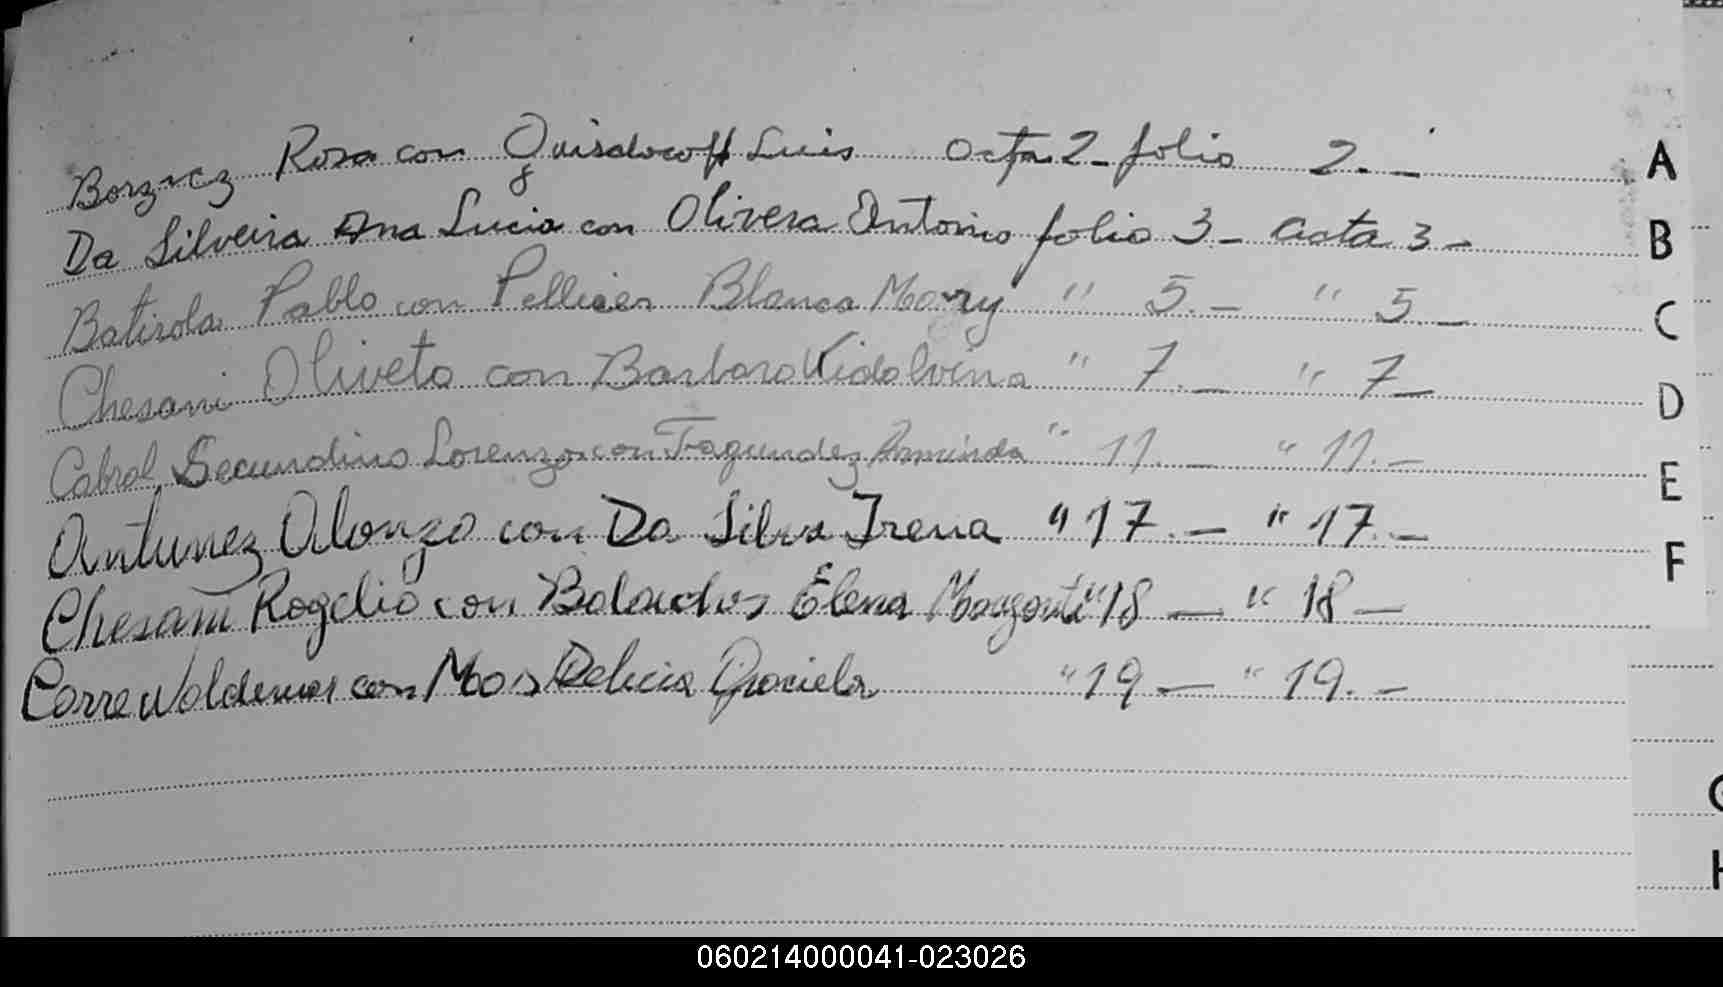 Rosa con Luis acta 2 - folio 2. - A
Da Silveira Ana Lucia con Olivera Antonio folio 3 - acta 3 - B
Batirola Pablo con Pellicer Blanca Mary " 5. - " 5. - C
Chesani Oliveto con Barbara " 7. - " 7 - D
Cabral Secundino Lorenzo con Fagundez " 11. - " 11. - E
Antunez Alonzo con Da Silva Irena " 17. - " 17. - F
Chesani Rogelio con Elena " 18 - " 18 -
Corre Waldemar con Delicia Graciela " 19 - " 19. -
G
H
060214000041-023026